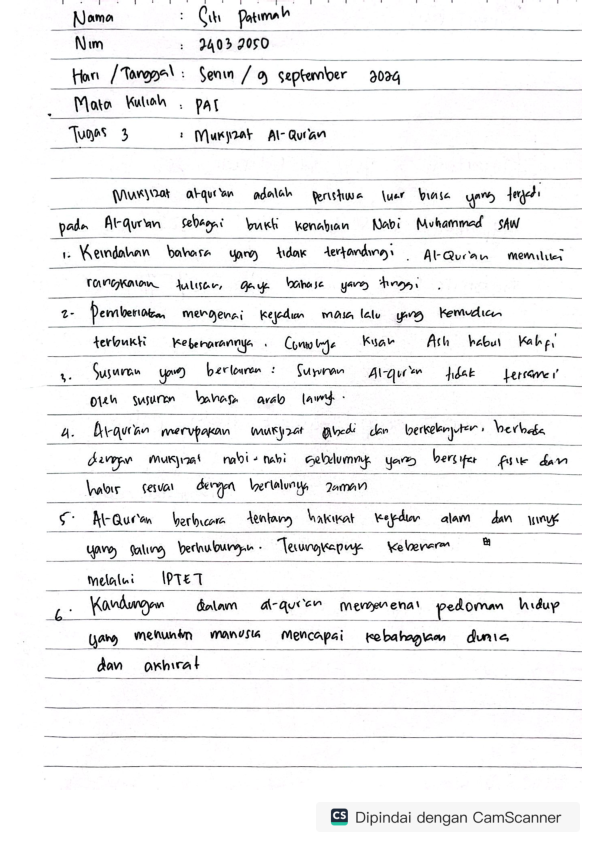 Nama : Siti Patimah
Nim : 24032050
Hari / Tanggal : Senin / 9 september 2024
Mata Kuliah : PAI
Tugas 3 : Mukjizat Al-Qur'an
Mukjizat al-qur'an adalah peristiwa luar biasa yang terjadi
pada Al-qur'an sebagai bukti kenabian Nabi Muhammad SAW
1. Keindahan bahasa yang tidak tertandingi. Al-Qur'an memiliki
rangkaian tulisan, gaya bahasa yang tinggi.
2- Pemberiataan mengenai kejadian masa lalu yang kemudian
terbukti kebenarannya. Contohnya kisah Ash habul Kahfi
3. Susunan yang berlainan : Susunan Al-qur'an tidak tersamai
oleh susunan bahasa arab lainnya.
4. Al-qur'an merupakan mukjizat abadi dan berkelanjutan, berbeda
dengan mukjizat nabi-nabi sebelumnya yang bersifat fisik dan
habis sesuai dengan berlalunya zaman
5. Al-Qur'an berbicara tentang hakikat kejadian alam dan isinya
yang saling berhubungan. Terungkapnya kebenaran
melalui IPTET
6. Kandungan dalam al-qur'an mengenenai pedoman hidup
yang menuntun manusia mencapai kebahagiaan dunia
dan akhirat
CS Dipindai dengan CamScanner